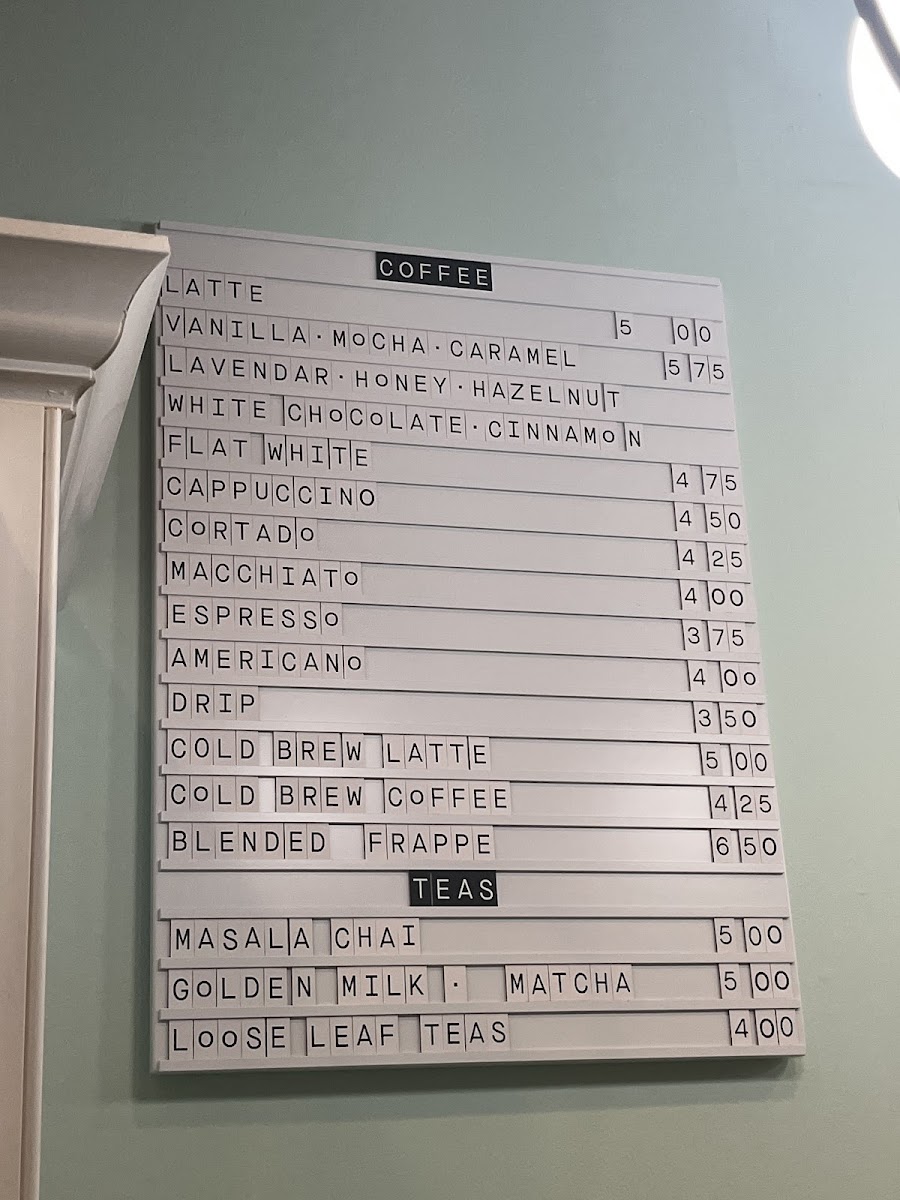 COFFEE
LATTE 5 00
VANILLA·MOCHA·CARAMEL 5 75
LAVENDAR·HONEY·HAZELNUT
WHITE CHOCOLATE·CINNAMON
FLAT WHITE 4 75
CAPPUCCINO 4 50
CORTADO 4 25
MACCHIATO 4 00
ESPRESSO 3 75
AMERICANO 4 00
DRIP 3 50
COLD BREW LATTE 5 00
COLD BREW COFFEE 4 25
BLENDED FRAPPE 6 50
TEAS
MASALA CHAI 5 00
GOLDEN MILK · MATCHA 5 00
LOOSE LEAF TEAS 4 00